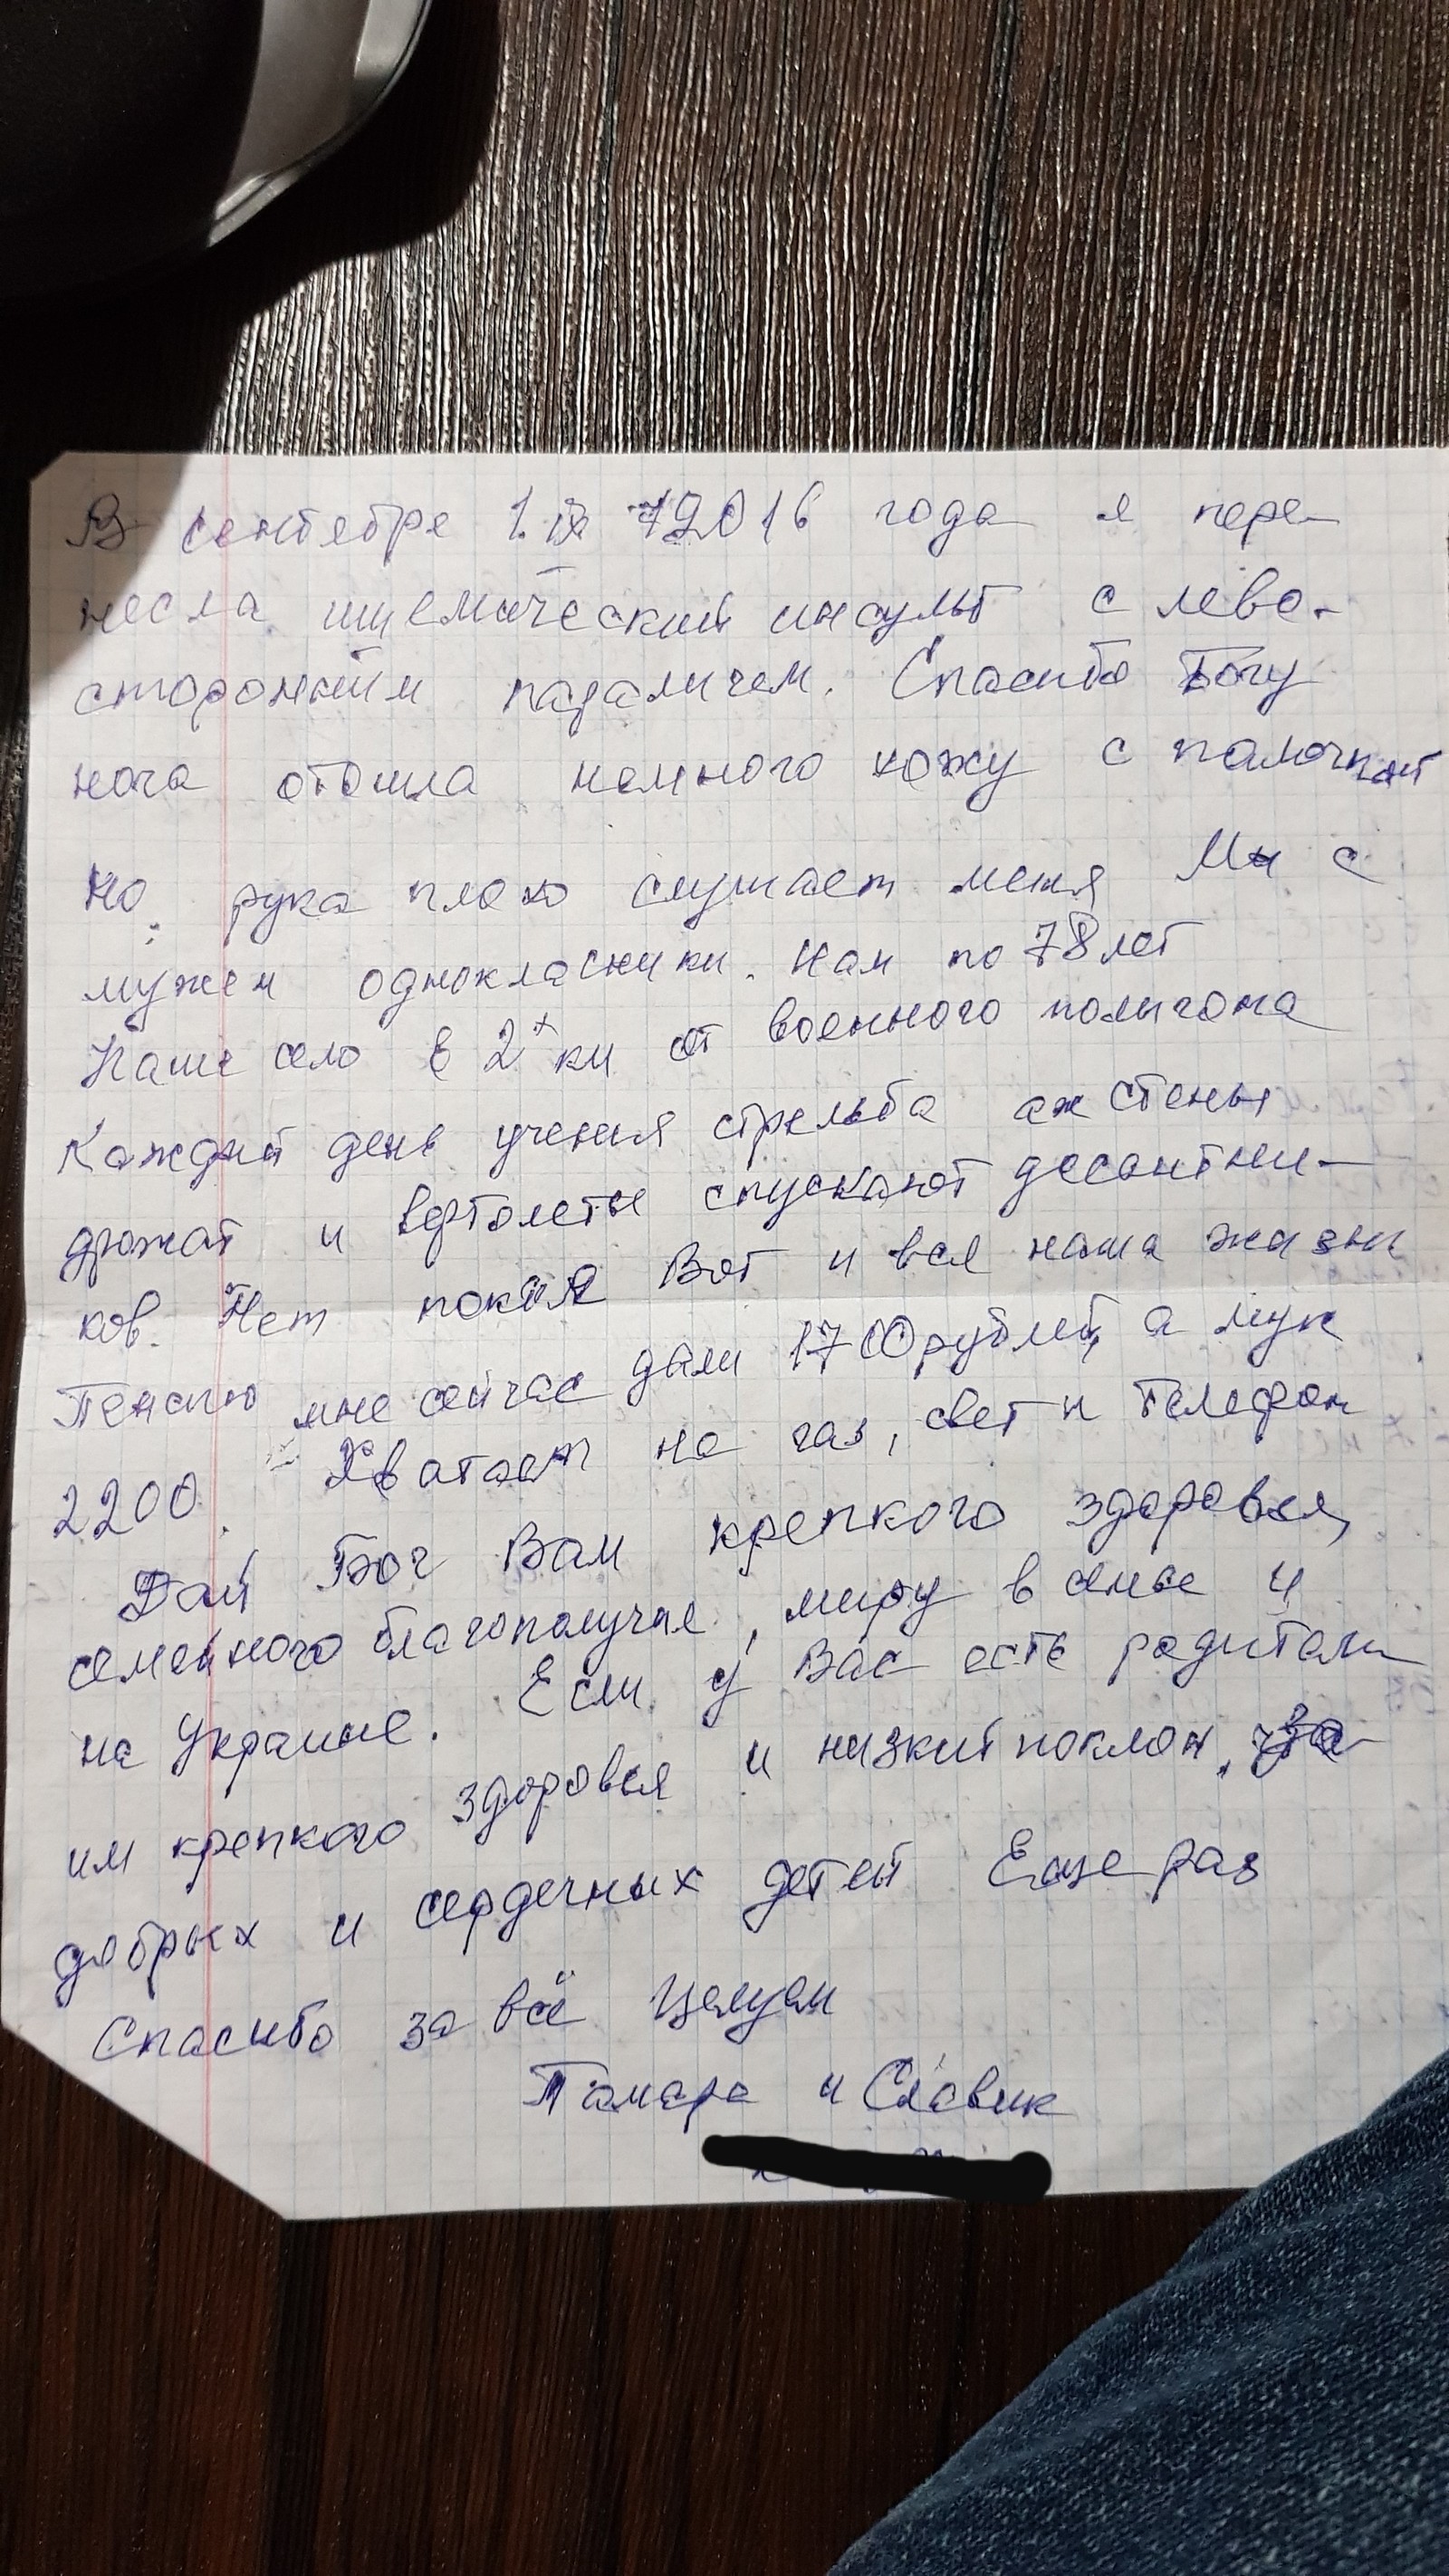 В сентябре 1.IX 2016 года я пере-
несла ишемический инсульт с лево-
сторонним параличем. Спасибо Богу
нога отошла немного хожу с палочкой
Но рука плохо слушает меня Мы с
мужем однокласники. Нам по 78 лет
Наше село в 2х км от военного полигона
Каждый день учения стрельба аж стены
дрожат и вертолеты спускают десантни-
ков. Нет покоя Вот и вся наша жизнь
Пенсию мне сейчас дали 1700 рублей, а муж
2200. Хватает на газ, свет и телефон
Дай Бог Вам крепкого здоровья,
семейного благополучия, миру в семье и
на Украине. Если у Вас есть родители
им крепкого здоровья и низкий поклон, за
добрых и сердечных детей Еще раз
Спасибо за всё Целуем
Тамара и Славик